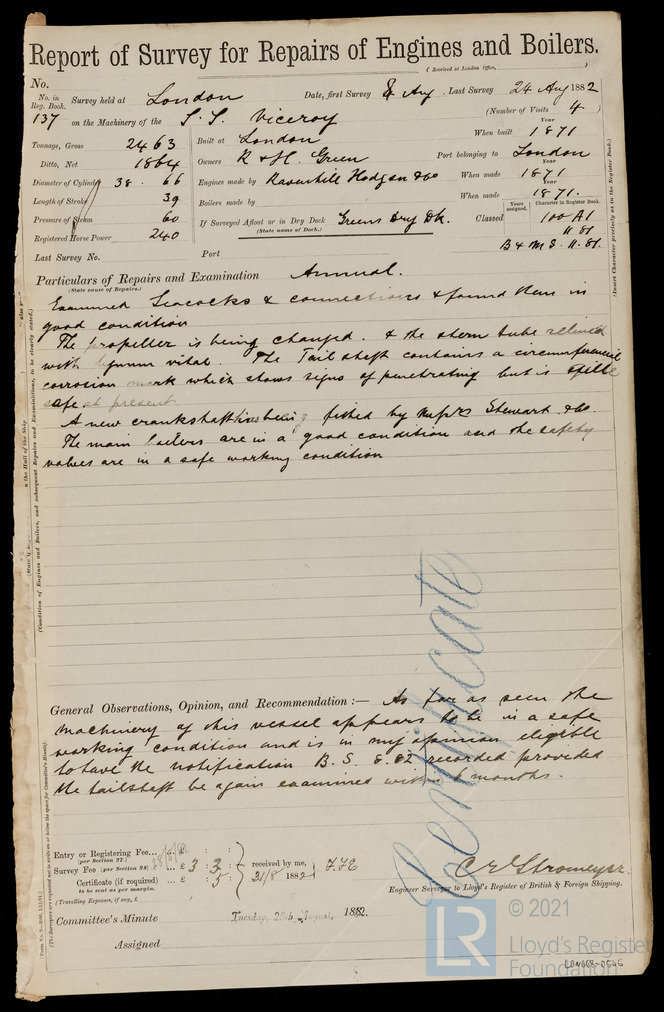 Report of Survey for Repairs of Engines and Boilers.
(Received at London Office, )
No.
No. in Reg. Book. Survey held at London Date, first Survey 8 Aug Last Survey 24 Aug 1882
(Number of Visits 4 )
137 on the Machinery of the S.S. Viceroy
Tonnage, Gross 2463 Built at London When built Year 1871
Ditto, Net 1864 Owners R & H. Green Port belonging to London
Diameter of Cylinder 38. 66 Engines made by Ravenhill Hodgson &Co When made Year 1871
Length of Stroke 39 Boilers made by When made Year 1871.
Pressure of Steam 60 If Surveyed Afloat or in Dry Dock Greens Dry Dk. Classed Years assigned. Character in Register Book. 100 A1
(State name of Dock.)
Registered Horse Power 240 11 81
Last Survey No. Port B & M S. 11. 81.
Particulars of Repairs and Examination Annual.
(State cause of Repairs.)
Examined Seacocks & connections & found them in
good condition
The propeller is being changed. & the stern tube relined
with lignum vitae. The Tail shaft contains a circumferencial
corrosion mark which shows signs of penetrating but is still
safe at present
A new crankshaft has been fitted by Messrs Stewart &Co.
The main boilers are in a good condition and the safety
valves are in a safe working condition
Certificate
General Observations, Opinion, and Recommendation :— As far as seen the
machinery of this vessel appears to be in a safe
working condition and is in my opinion eligible
to have the notification B. S. 8. 82 recorded provided
the tailshaft be again examined within 6 months.
Entry or Registering Fee... £ : :
(per Section 27.)
Survey Fee (per Section 28) £ 3 : 3 : received by me,
Certificate (if required) ... £ : 5 : 21/8 1882
to be sent as per margin.
(Travelling Expenses, if any, £ )
C E Stromeyer
Engineer Surveyor to Lloyd's Register of British & Foreign Shipping.
Committee's Minute Tuesday, 29th August, 1882.
Assigned
(Insert Character precisely as in the Register Book.)
(Condition of Engines and Boilers, and subsequent Repairs and Examinations, to be clearly stated.)
(The Surveyors are requested not to write on or below the space for Committee's Minute.)
LR © 2021
Lloyd's Register
Foundation